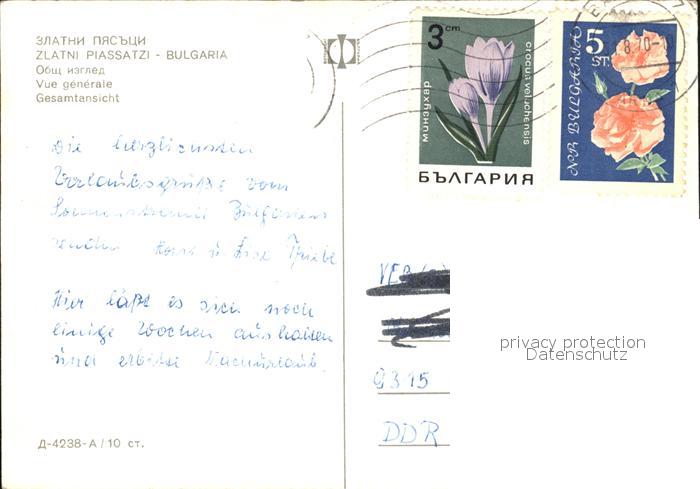 ЗЛАТНИ ПЯСЪЦИ
ZLATNI PIASSATZI - BULGARIA
Общ изглед
Vue générale
Gesamtansicht
Die herzlichsten
Urlaubsgrüße vom
Sonnenstrand Bulgariens
senden Hans u.
Hier läßt es sich noch
einige Wochen aushalten
und erbitte Nachurlaub.
Д-4238-А/10 ст.
3 cm
минзухар
crocus veluchensis
БЪЛГАРИЯ
5 ST.
NR BULGARIA
8.70
VEB
9315
DDR
privacy protection
Datenschutz